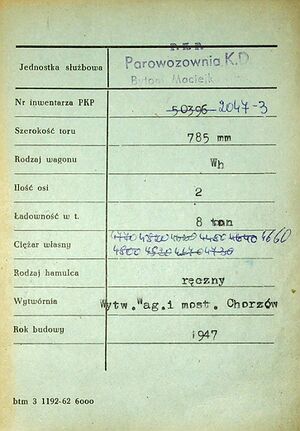 P.K.P.
Jednostka służbowa Parowozownia K.D
Bytom Maciejk
Nr inwentarza PKP 50396 2047-3
Szerokość toru 785 mm
Rodzaj wagonu Wh
Ilość osi 2
Ładowność w t. 8 ton
Ciężar własny 4660
Rodzaj hamulca ręczny
Wytwórnia Wytw.Wag.i most. Chorzów
Rok budowy 1947
btm 3 1192-62 6000